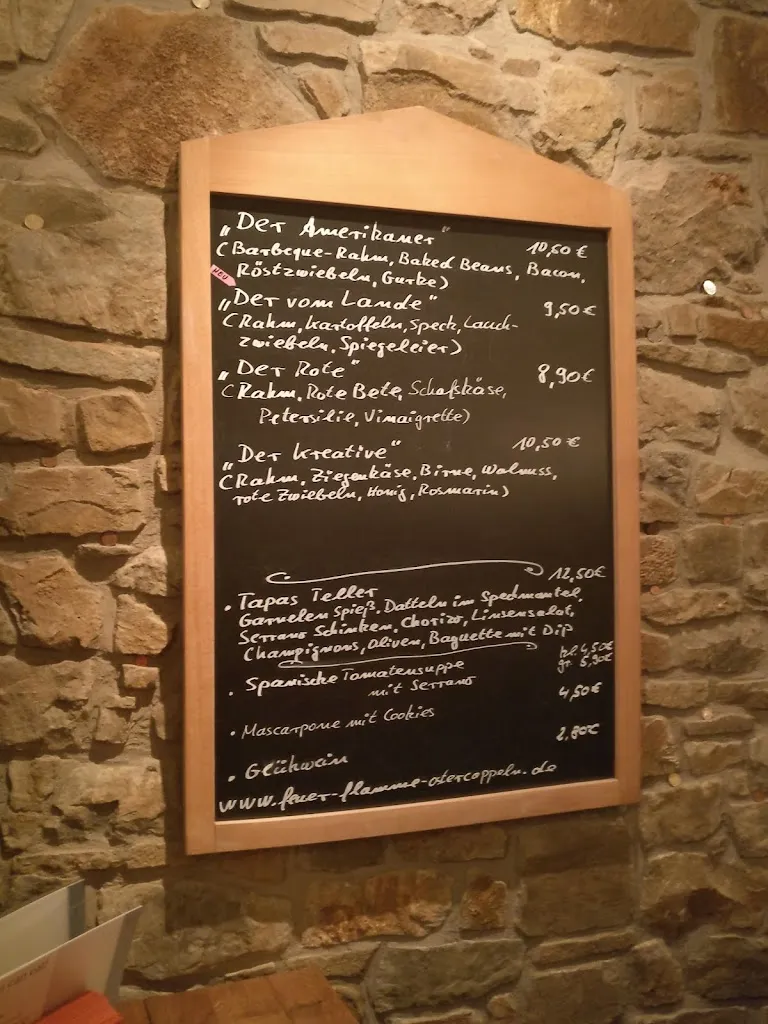 „Der Amerikaner" 10,60 €
(Barbeque-Rahm, Baked Beans, Bacon,
NEU Röstzwiebeln, Gurke)
„Der vom Lande" 9,50 €
(Rahm, Kartoffeln, Speck, Lauch-
zwiebeln, Spiegeleier)
„Der Rote" 8,90 €
(Rahm, Rote Bete, Schafskäse,
Petersilie, Vinaigrette)
„Der Kreative" 10,50 €
(Rahm, Ziegenkäse, Birne, Walnuss,
rote Zwiebeln, Honig, Rosmarin)
• Tapas Teller 12,50€
Garnelen Spieß, Datteln im Speckmantel,
Serrano Schinken, Chorizo, Linsensalat,
Champignons, Oliven, Baguette mit Dip
• Spanische Tomatensuppe kl. 4,50€
mit Serrano gr. 5,90€
• Mascarpone mit Cookies 4,50€
• Glühwein 2,80€
www.feuer-flamme-ostercappeln.de